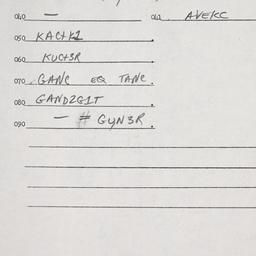 040 — 042 AVEKC
050 KACHK1
060 KUCH3R
070 GANC EQ TANC.
080 GANDZG1T
090 — # GYN3R.